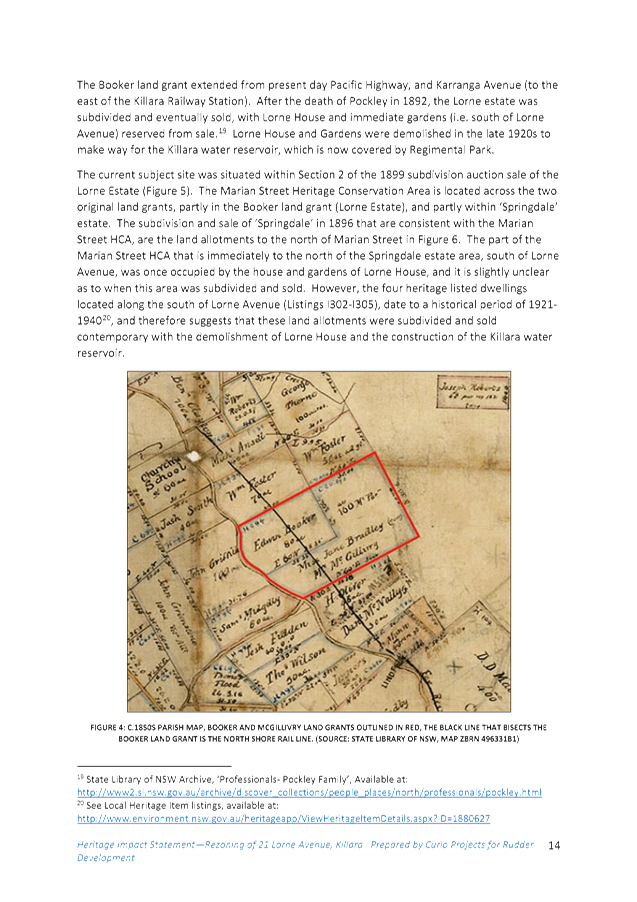 The Booker land grant extended from present day Pacific Highway, and Karranga Avenue (to the
east of the Killara Railway Station). After the death of Pockley in 1892, the Lorne estate was
subdivided and eventually sold, with Lorne House and immediate gardens (i.e. south of Lorne
Avenue) reserved from sale.19 Lorne House and Gardens were demolished in the late 1920s to
make way for the Killara water reservoir, which is now covered by Regimental Park.
The current subject site was situated within Section 2 of the 1899 subdivision auction sale of the
Lorne Estate (Figure 5). The Marian Street Heritage Conservation Area is located across the two
original land grants, partly in the Booker land grant (Lorne Estate), and partly within 'Springdale'
estate. The subdivision and sale of 'Springdale' in 1896 that are consistent with the Marian
Street HCA, are the land allotments to the north of Marian Street in Figure 6. The part of the
Marian Street HCA that is immediately to the north of the Springdale estate area, south of Lorne
Avenue, was once occupied by the house and gardens of Lorne House, and it is slightly unclear
as to when this area was subdivided and sold. However, the four heritage listed dwellings
located along the south of Lorne Avenue (Listings I302-I305), date to a historical period of 1921-
194020, and therefore suggests that these land allotments were subdivided and sold
contemporary with the demolishment of Lorne House and the construction of the Killara water
reservoir.
Joseph Roberts
George
Thorne
100 acres
Wm
Roberts
Wm Foster
Church &
School
Wm Foster
Josh Smith
Edmd Booker
John Griffiths
Jane Bradley
McGillivry
Saml Midgley
H Oliver
Danl McNally
Josh Fidden
Thos Wilson
50 ac.
D. D. M
400
FIGURE 4: C.1850S PARISH MAP, BOOKER AND MCGILLIVRY LAND GRANTS OUTLINED IN RED, THE BLACK LINE THAT BISECTS THE
BOOKER LAND GRANT IS THE NORTH SHORE RAIL LINE. (SOURCE: STATE LIBRARY OF NSW, MAP ZBRN 496331B1)
19 State Library of NSW Archive, 'Professionals- Pockley Family', Available at:
http://www2.sl.nsw.gov.au/archive/discover_collections/people_places/north/professionals/pockley.html
20 See Local Heritage Item listings, available at:
http://www.environment.nsw.gov.au/heritageapp/ViewHeritageItemDetails.aspx?ID=1880627
Heritage Impact Statement—Rezoning of 21 Lorne Avenue, Killara Prepared by Curio Projects for Rudder 14
Development